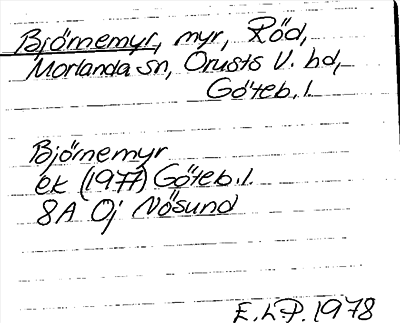 Björnemyr, myr, Röd,
Morlanda sn, Orusts V. hd,
Göteb. l.
Björnemyr
ek (1977) Göteb. l.
8A Oj Nösund
E.L.P. 1978